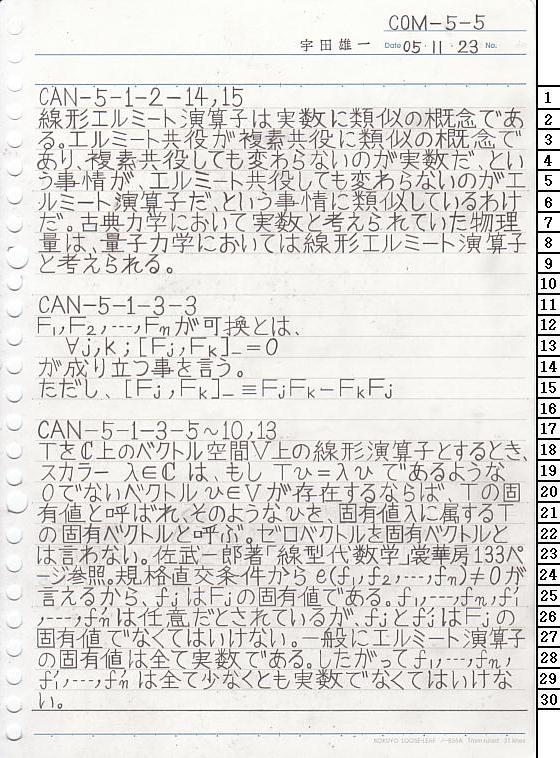 COM-5-5
宇田雄一 Date 05・11・23 No.
CAN-5-1-2-14,15
線形エルミート演算子は実数に類似の概念であ
る。エルミート共役が複素共役に類似の概念で
あり、複素共役しても変わらないのが実数だ、とい
う事情が、エルミート共役しても変わらないのがエ
ルミート演算子だ、という事情に類似しているわけ
だ。古典力学において実数と考えられていた物理
量は、量子力学においては線形エルミート演算子
と考えられる。
CAN-5-1-3-3
F₁,F₂,---,Fₙが可換とは、
∀j,k;[Fj,Fk]₋=0
が成り立つ事を言う。
ただし、[Fj,Fk]₋≡FjFk-FkFj
CAN-5-1-3-5~10,13
Tをℂ上のベクトル空間V上の線形演算子とするとき、
スカラー λ∈ℂ は、もし Tv=λv であるような
0でないベクトル v∈V が存在するならば、Tの固
有値と呼ばれ、そのようなvを、固有値λに属するT
の固有ベクトルと呼ぶ。ゼロベクトルを固有ベクトルと
は言わない。佐武一郎著「線型代数学」裳華房133ペ
ージ参照。規格直交条件から e(f₁,f₂,---,fₙ)≠0が
言えるから、fjはFjの固有値である。f₁,---,fₙ,f₁′
,---,fₙ′は任意だとされているが、fjとfj′はFjの
固有値でなくてはいけない。一般にエルミート演算子
の固有値は全て実数である。したがってf₁,---,fₙ,
f₁′,---,fₙ′は全て少なくとも実数でなくてはいけな
い。
KOKUYO LOOSE-LEAF ノ-836A 7mm ruled 31 lines
1
2
3
4
5
6
7
8
9
10
11
12
13
14
15
16
17
18
19
20
21
22
23
24
25
26
27
28
29
30